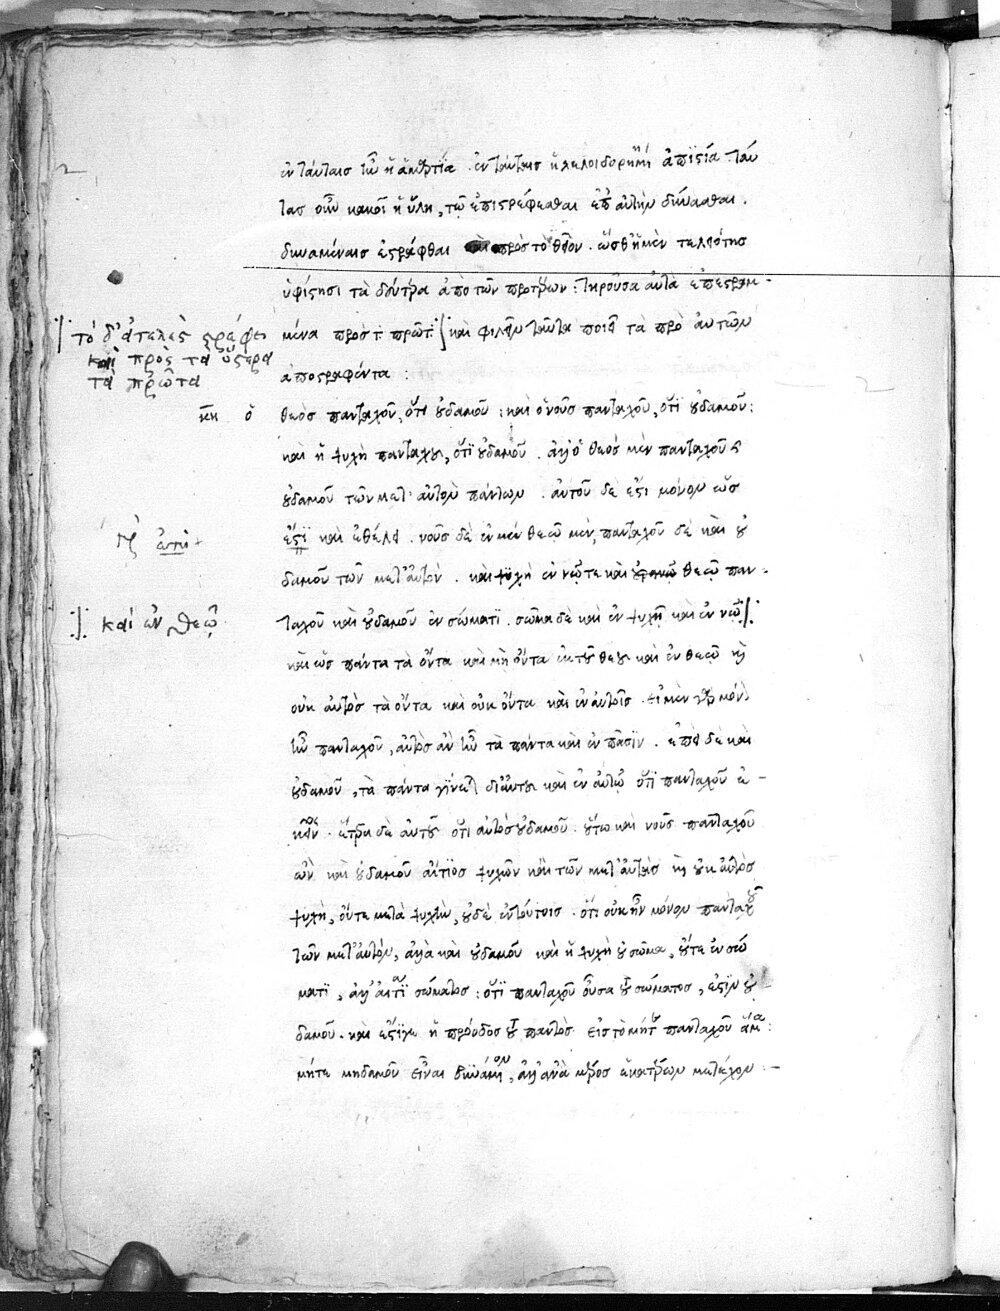 ἐν ταύταις ἦν ἡ ἁμαρτία. ἐν ταύταις ἡ λελοιδορημένη ἀπιστία. ταύ
ταις οὖν κακὸν ἡ ὕλη, τῷ ἐπιστρέφεσθαι ἐπ' αὐτὴν δύνασθαι.
δυναμέναις ἐστράφθαι πρὸς τὸ θεῖον. ὥσθ' ἡ μὲν τελειότης
ὑφίστησι τὰ δεύτερα ἀπὸ τῶν προτέρων· τηροῦσα αὐτὰ ἐπεστραμ-
τὸ δ' ἀτελὲς στρέφει
καὶ πρὸς τὰ ὕστερα
τὰ πρῶτα
μένα πρὸς τ: πρῶτ: καὶ φιλεῖν ταῦτα ποιεῖ τὰ πρὸ αὐτῶν
ἀποστραφέντα:
ὁ θεὸς πανταχοῦ, ὅτι οὐδαμοῦ: καὶ ὁ νοῦς πανταχοῦ, ὅτι οὐδαμοῦ:
καὶ ἡ ψυχὴ πανταχοῦ, ὅτι οὐδαμοῦ. ἀλλ' ὁ θεὸς μὲν πανταχοῦ καὶ
οὐδαμοῦ τῶν μετ' αὐτὸν πάντων. αὐτοῦ δέ ἐστι μόνον ὡς
ἐστὶ καὶ ἐθέλει. νοῦς δὲ ἐν μὲν θεῷ μὲν, πανταχοῦ δὲ καὶ οὐ
δαμοῦ τῶν μετ' αὐτόν. καὶ ψυχὴ ἐν νῷ τε καὶ θεῷ παν-
καὶ ἐν θεῷ
ταχοῦ καὶ οὐδαμοῦ ἐν σώματι. σῶμα δὲ καὶ ἐν ψυχῇ καὶ ἐν νῷ
καὶ ὡς πάντα τὰ ὄντα καὶ μὴ ὄντα ἐκ τοῦ θεοῦ καὶ ἐν θεῷ καὶ
οὐκ αὐτὸς τὰ ὄντα καὶ οὐκ ὄντα καὶ ἐν αὐτοῖς. εἰ μὲν γὰρ μόνον
ἦν πανταχοῦ, αὐτὸς ἂν ἦν τὰ πάντα καὶ ἐν πᾶσιν. ἐπεὶ δὲ καὶ
οὐδαμοῦ, τὰ πάντα γίνεται δι' αὐτοῦ καὶ ἐν αὐτῷ ὅτι πανταχοῦ ἐ-
κεῖνος. ἕτερα δὲ αὐτοῦ ὅτι αὐτὸς οὐδαμοῦ. οὕτω καὶ νοῦς πανταχοῦ
ὢν καὶ οὐδαμοῦ αἴτιος ψυχῶν καὶ τῶν μετ' αὐτὰς καὶ οὐκ αὐτὸς
ψυχὴ, οὔτε μετὰ ψυχὴν, οὐδὲ ἐν τούτοις. ὅτι οὐκ ἦν μόνον πανταχοῦ
τῶν μετ' αὐτὸν, ἀλλὰ καὶ οὐδαμοῦ καὶ ἡ ψυχὴ οὐ σῶμα, οὔτε ἐν σώ
ματι, ἀλλ' αἰτία σώματος: ὅτι πανταχοῦ οὖσα τοῦ σώματος, ἐστὶν οὐ-
δαμοῦ. καὶ ἔστιγε ἡ πρόοδος τοῦ παντὸς εἰς τὸ μήτε πανταχοῦ ἅμα:
μήτε μηδαμοῦ εἶναι δυνάμενον, ἀλλ' ἀνὰ μέρος ἑκατέρων μετέχον:-